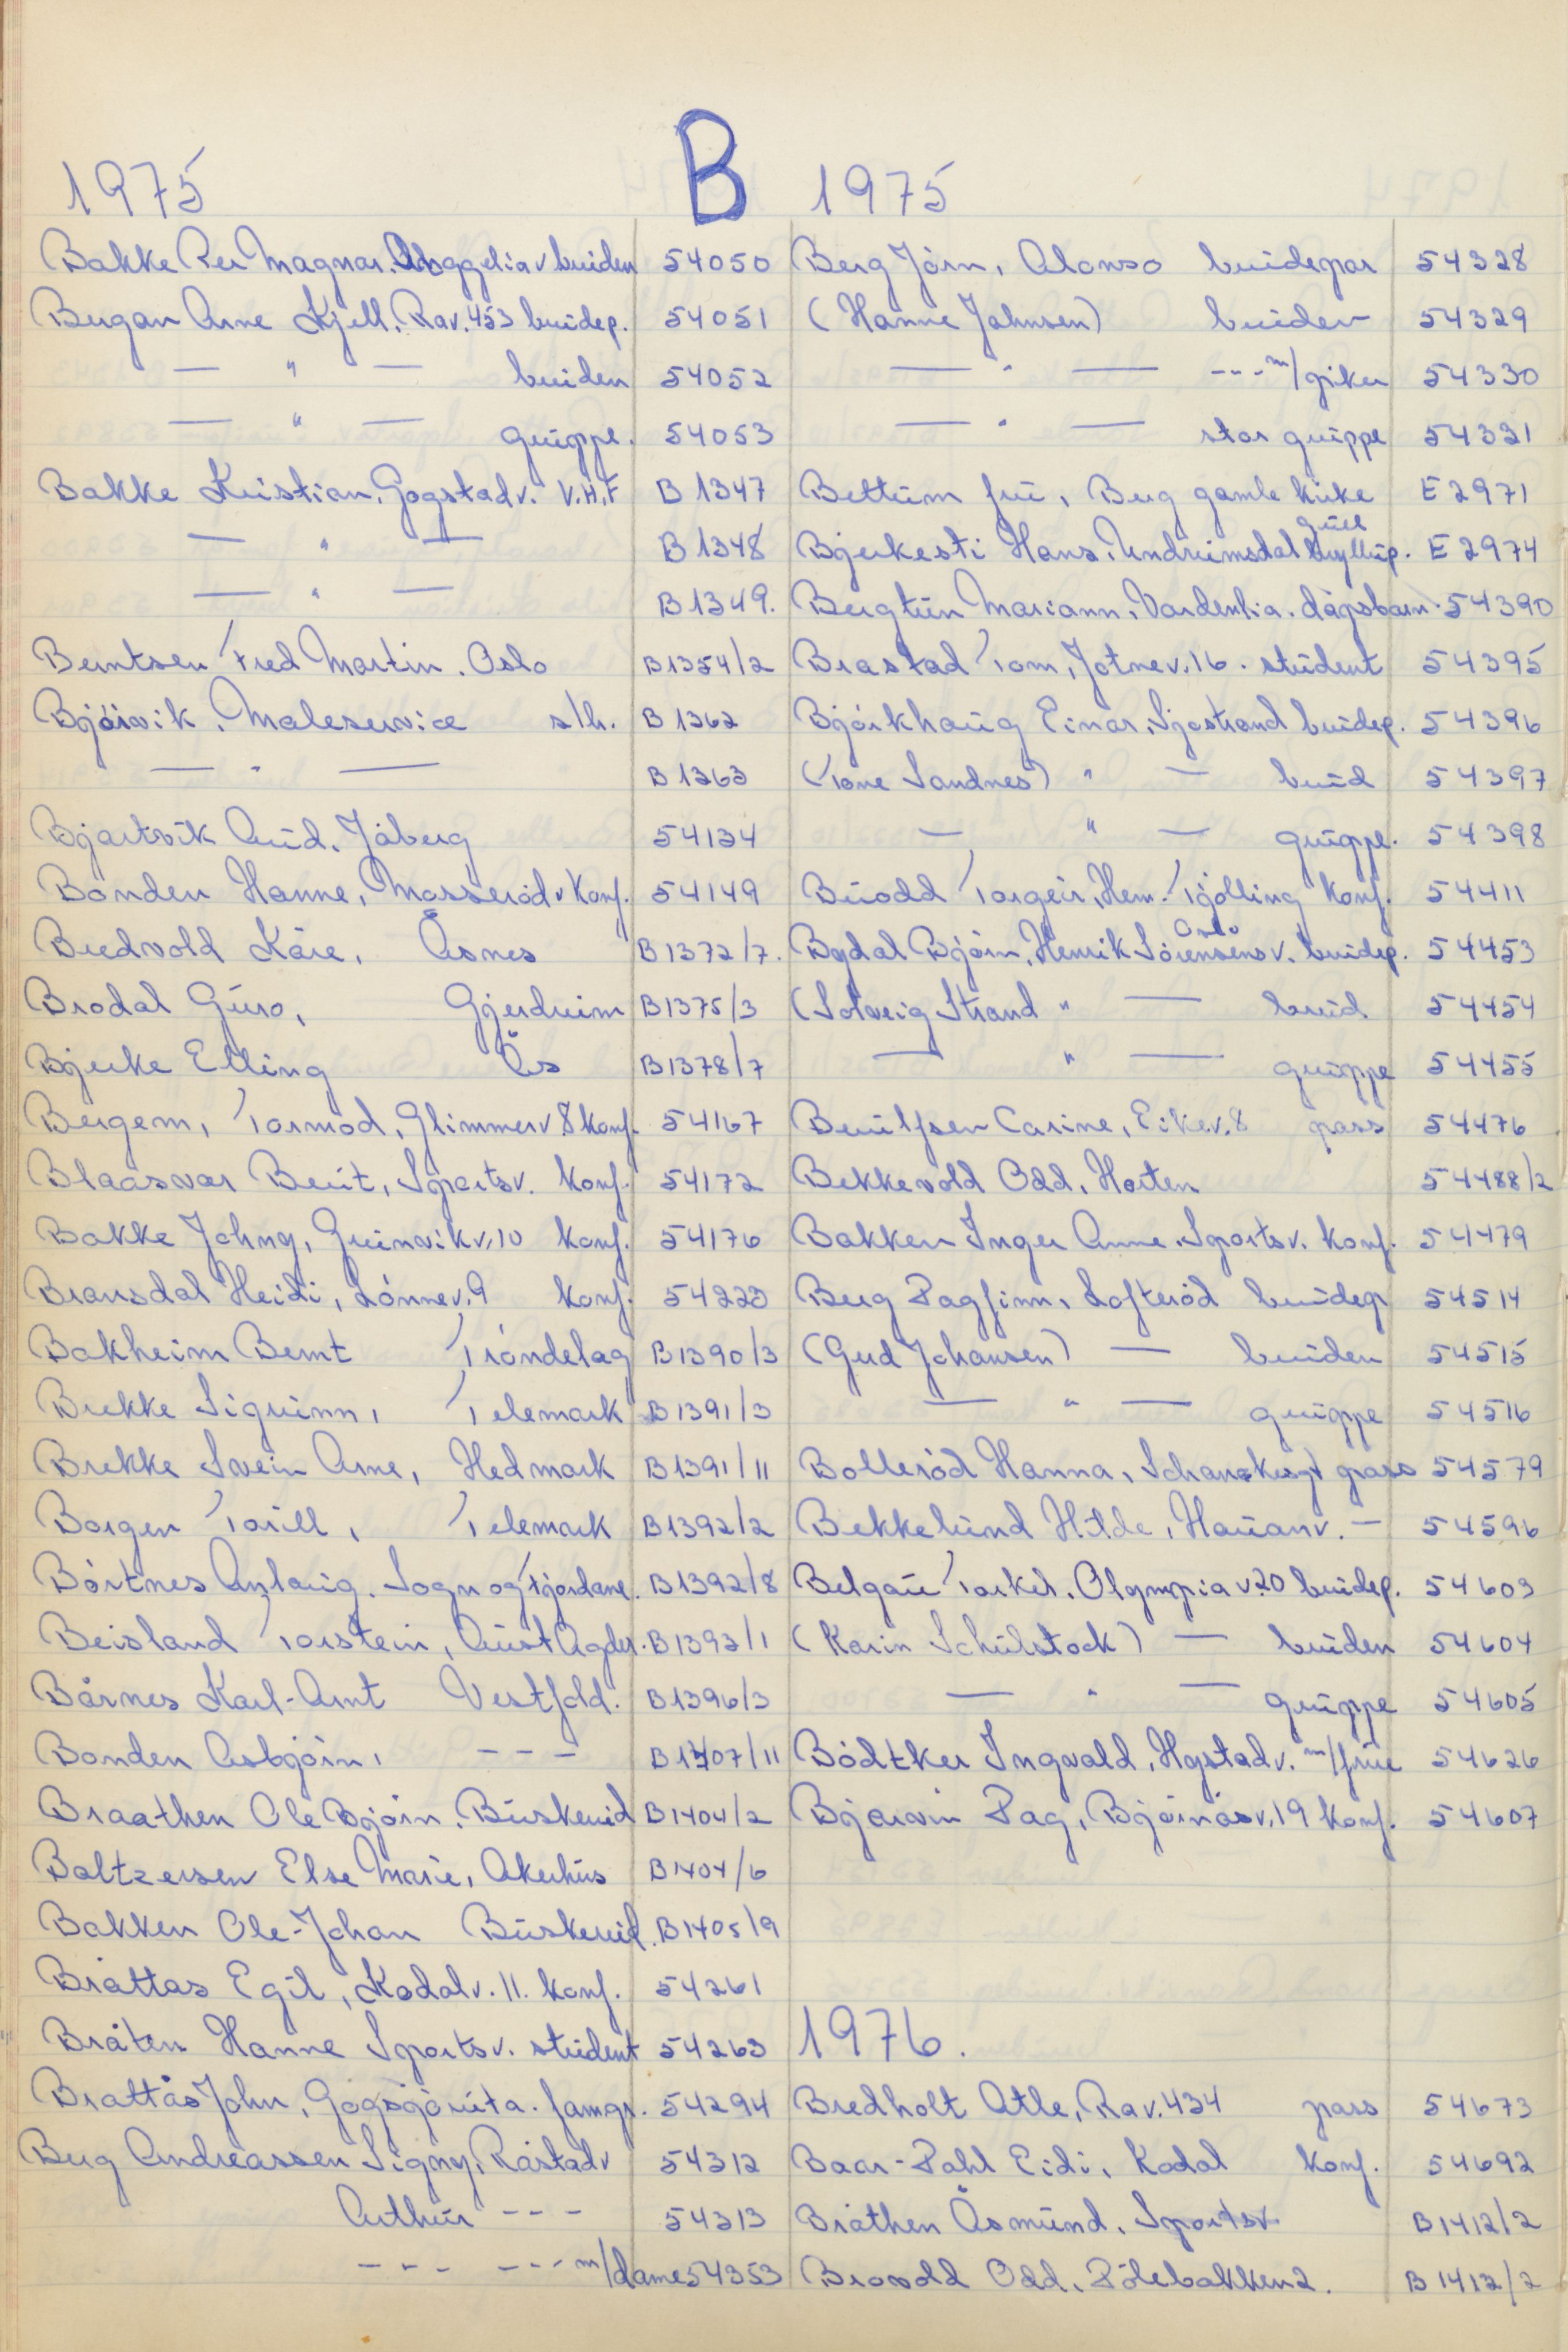 B
1975
Bakke Per Magnar. v bruden 54050
Bugan Arne Kjell. Rav. 453 brudep. 54051
— " — bruden 54052
— " — gruppe. 54053
Bakke Kristian. Gogstadv. V.H.F B 1347
— " — B 1348
— " — B 1349.
Berntsen Fred Martin. Oslo B1354/2
Bjørvik. Maleservice s/h. B 1362
— " — B 1363
Bjartvik Aud. Jåberg 54134
Bonden Hanne, Mosserød v Konf. 54149
Bredvold Kåre, Åsnes B1372/7.
Brodal Guro, Gjerdrum B1375/3
Bjerke Elling Ås B1378/7
Bergem, Tormod, Glimmerv 8 konf. 54167
Blaasvær Berit, Sportsv. konf. 54172
Bakke Johny, Grinivikv. 10 konf. 54176
Bransdal Heidi, Lønnev. 9 konf. 54223
Bakheim Bernt Trøndelag B1390/3
Brekke Sigrunn, Telemark B1391/3
Brekke Svein Arne, Hedmark B1391/11
Borgen Torill, Telemark B1392/2
Børtnes Anlaug. Sogn og Fjordane. B1392/8
Beisland Torstein, Aust Agder. B1393/1
Bårnes Karl-Arnt Vestfold. B1396/3
Bonden Asbjørn, - - - B1407/11
Braathen Ole Bjørn. Buskerud B1404/2
Baltzersen Else Marie, Akerhus B1404/6
Bakken Ole-Johan Buskerud. B1405/9
Bråttas Egil, Kodalv. 11. konf. 54261
Bråten Hanne Sportsv. student 54263
Brattås John, famgr. 54294
Berg Andreassen Signy, Råstadv 54312
Arthur - - - 54313
- - - - - - m/dame 54353
1975
Berg Jørn, Alonso brudepar 54328
(Hanne Johnsen) bruden 54329
— " — - - - m/piker 54330
— " — stor gruppe 54331
Bettum fru, Berg gamle kirke E 2971
Bjerkesti Hans. Undrumsdal gull bryllup. E 2974
Bergtun Mariann, Vardenlia. dåpsbarn. 54390
Brastad Tom, Jotnev. 16. student 54395
Bjørkhaug Einar, Sjøstrand brudep. 54396
(Tone Sandnes) " — brud 54397
— " — gruppe. 54398
Buodd Torgeir, Hem. Tjølling konf. 54411
Bydal Bjørn, Henrik Sørensens v. Oslo brudep. 54453
(Solveig Strand " — brud. 54454
— " — gruppe 54455
Berulfsen Carine, Eikev. 8 pass 54476
Bekkevold Odd, Horten 54488/2
Bakken Inger Anne. Sportsv. konf. 54479
Berg Dagfinn, Lofterød brudep 54514
(Gerd Johansen) — bruden 54515
— " — gruppe 54516
Bollerød Hanna, pass 54579
Bekkelund Hilde, Hauanv. — 54596
Belgau Torkel. Olympia v 20 brudep. 54603
(Karin Schulstock) — bruden 54604
— " — gruppe 54605
Bødtker Ingvald, Hystadv. m/frue 54626
Bjarvin Dag, Bjørnåsv, 19 konf. 54607
1976.
Bredholt Atle, Rav. 434 pass 54673
Baar-Dahl Eidi, Kodal konf. 54692
Bråthen Åsmund. Sportsv B1412/2
Brovold Odd. Pølebakken 2. B 1412/2